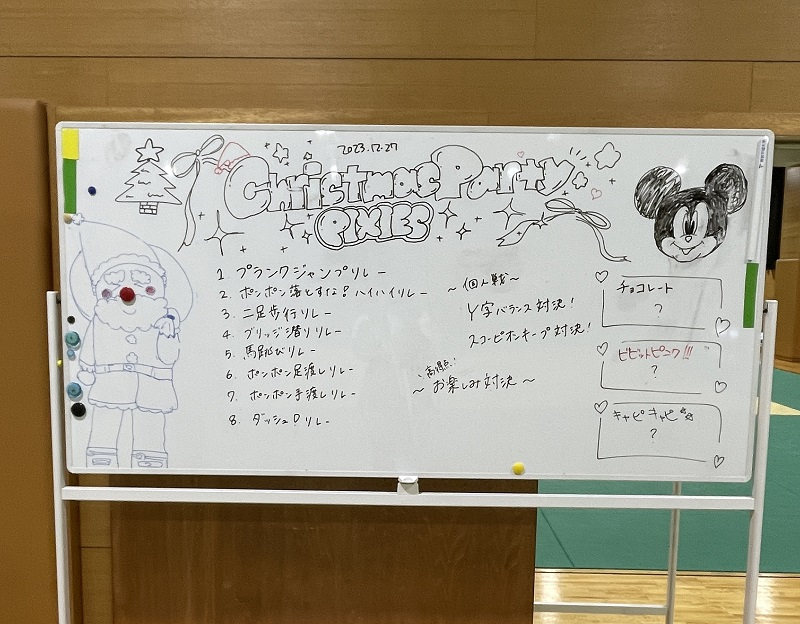 2023.12.27
Christmas Party
PIXIES
1. プランクジャンプリレー
2. ポンポン落とすな!ハイハイリレー
3. 二足歩行リレー
4. ブリッジ潜りリレー
5. 馬跳びリレー
6. ポンポン足渡しリレー
7. ポンポン手渡しリレー
8. ダッシュ!リレー
～個人戦～
Y字バランス対決!
スコーピオンキープ対決!
高得点!
～お楽しみ対決～
チョコレート
?
ビビットピンク!!!
?
キャピキャピ
?